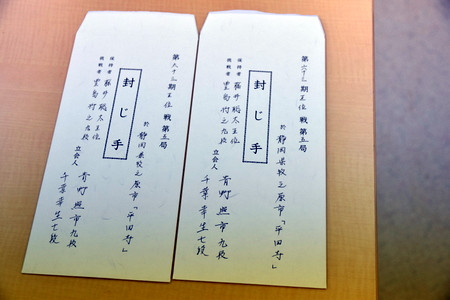 第六十三期王位戦第五局
於 静岡県牧之原市「平田寺」
封じ手
保持者 藤井聡太王位
挑戦者 豊島将之九段
立会人 青野照市九段
千葉幸生七段
第六十三期王位戦第五局
於 静岡県牧之原市「平田寺」
封じ手
保持者 藤井聡太王位
挑戦者 豊島将之九段
立会人 青野照市九段
千葉幸生七段